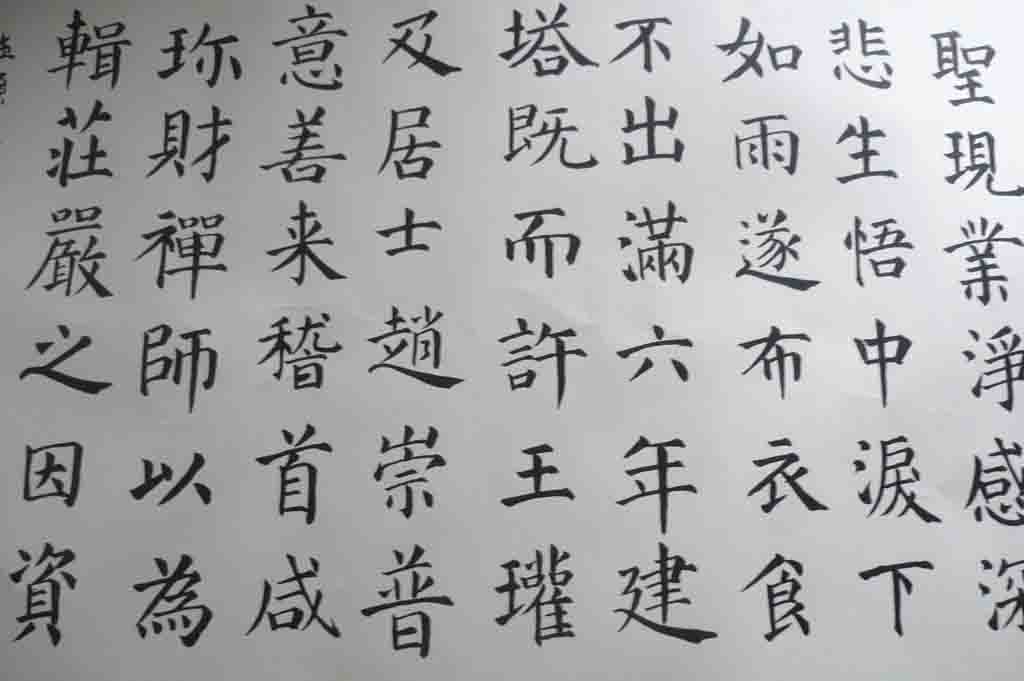 聖現業淨感深
悲生悟中淚下
如雨遂布衣食
不出滿六年建
塔既而許王瓘
及居士趙崇普
意善来稽首咸
珎財禪師以為
輯莊嚴之因資